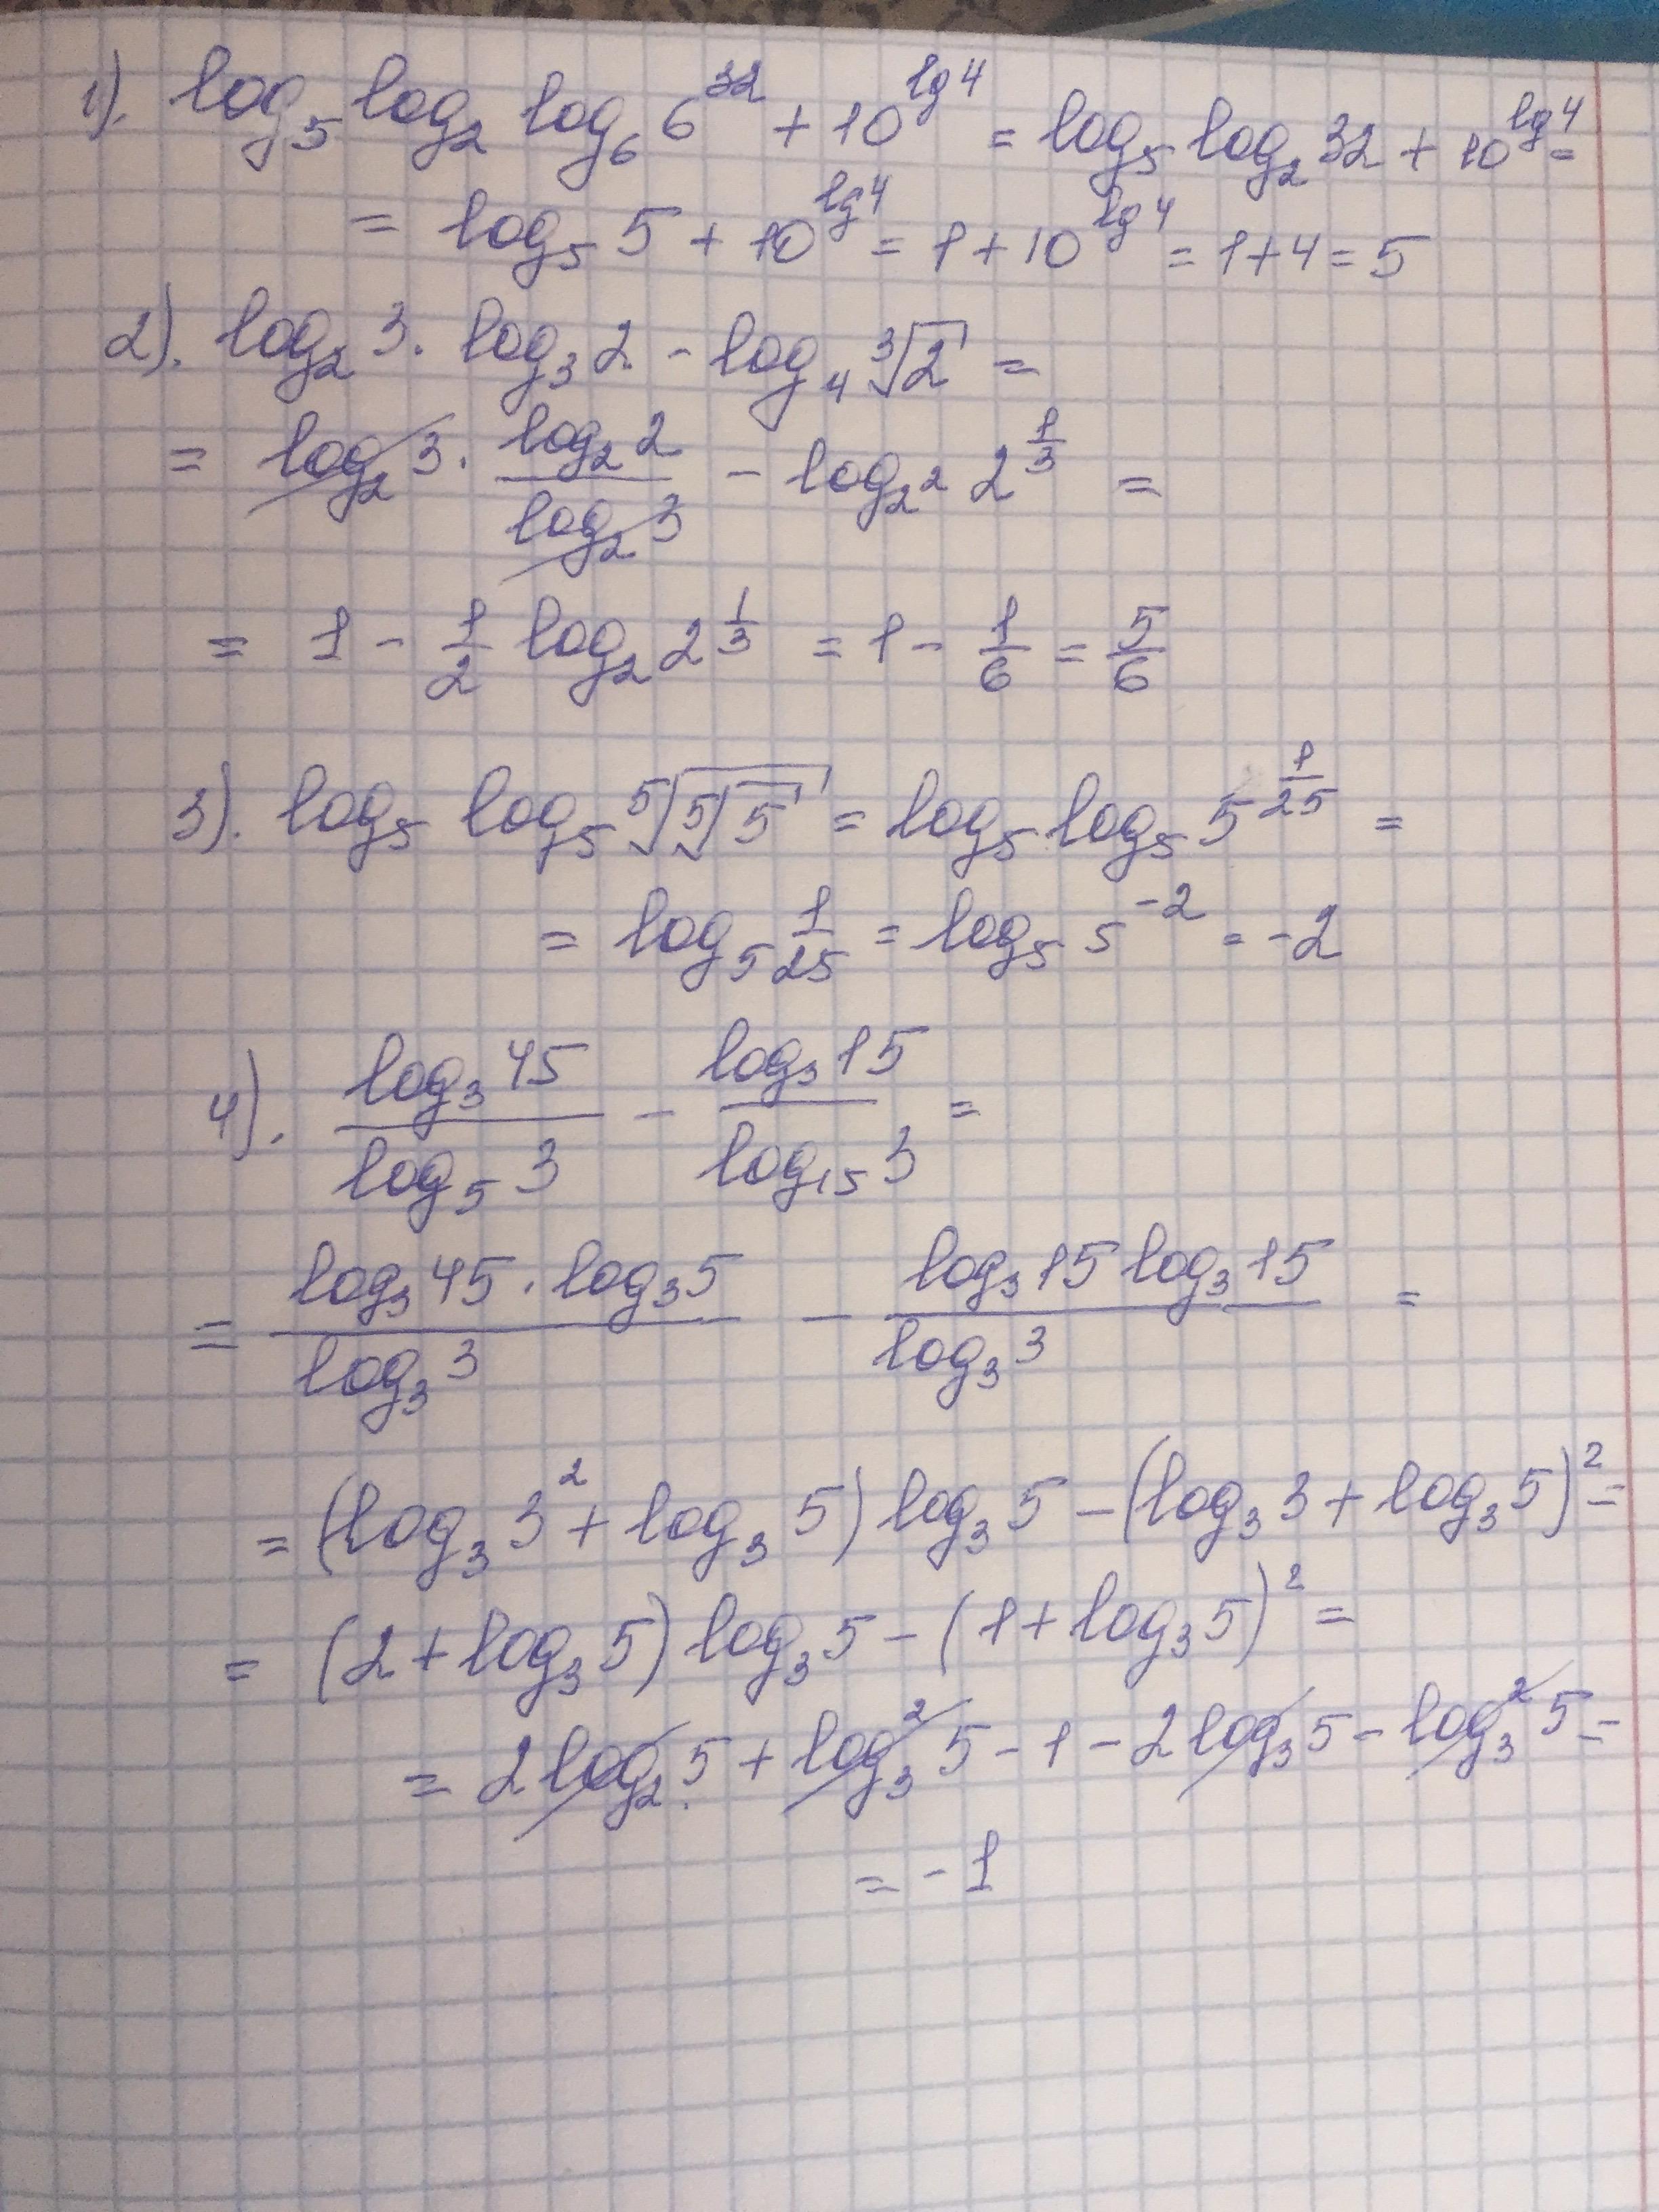 1). log₅ log₂ log₆ 6³² + 10^(lg 4) = log₅ log₂ 32 + 10^(lg 4) =
= log₅ 5 + 10^(lg 4) = 1 + 10^(lg 4) = 1 + 4 = 5
2). log₂ 3 · log₃ 2 - log₄ ∛2 =
= log₂ 3 · (log₂ 2)/(log₂ 3) - log_(2²) 2^(1/3) =
= 1 - 1/2 log₂ 2^(1/3) = 1 - 1/6 = 5/6
3). log₅ log₅ ⁵√(⁵√5) = log₅ log₅ 5^(1/25) =
= log₅ 1/25 = log₅ 5⁻² = -2
4). (log₃ 45)/(log₅ 3) - (log₃ 15)/(log₁₅ 3) =
= (log₃ 45 · log₃ 5)/(log₃ 3) - (log₃ 15 log₃ 15)/(log₃ 3) =
= (log₃ 3² + log₃ 5) log₃ 5 - (log₃ 3 + log₃ 5)² =
= (2 + log₃ 5) log₃ 5 - (1 + log₃ 5)² =
= 2 log₂ 5 + log₃² 5 - 1 - 2 log₃ 5 - log₃² 5 =
= -1